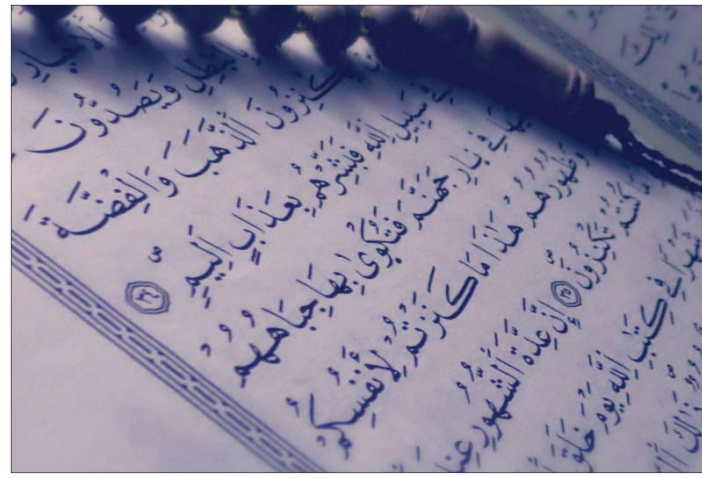 ٱلْأَحْبَارِ
وَيَصُدُّونَ
يَكْنِزُونَ ٱلذَّهَبَ وَٱلْفِضَّةَ
فِي سَبِيلِ ٱللَّهِ فَبَشِّرْهُم بِعَذَابٍ أَلِيمٍ ٣٤
فِي نَارِ جَهَنَّمَ فَتُكْوَىٰ بِهَا جِبَاهُهُمْ
وَظُهُورُهُمْ هَٰذَا مَا كَنَزْتُمْ لِأَنفُسِكُمْ
كُنتُمْ تَكْنِزُونَ ٣٥ إِنَّ عِدَّةَ ٱلشُّهُورِ عِندَ
شَهْرًا فِي كِتَٰبِ ٱللَّهِ يَوْمَ خَلَقَ
ذَٰلِكَ